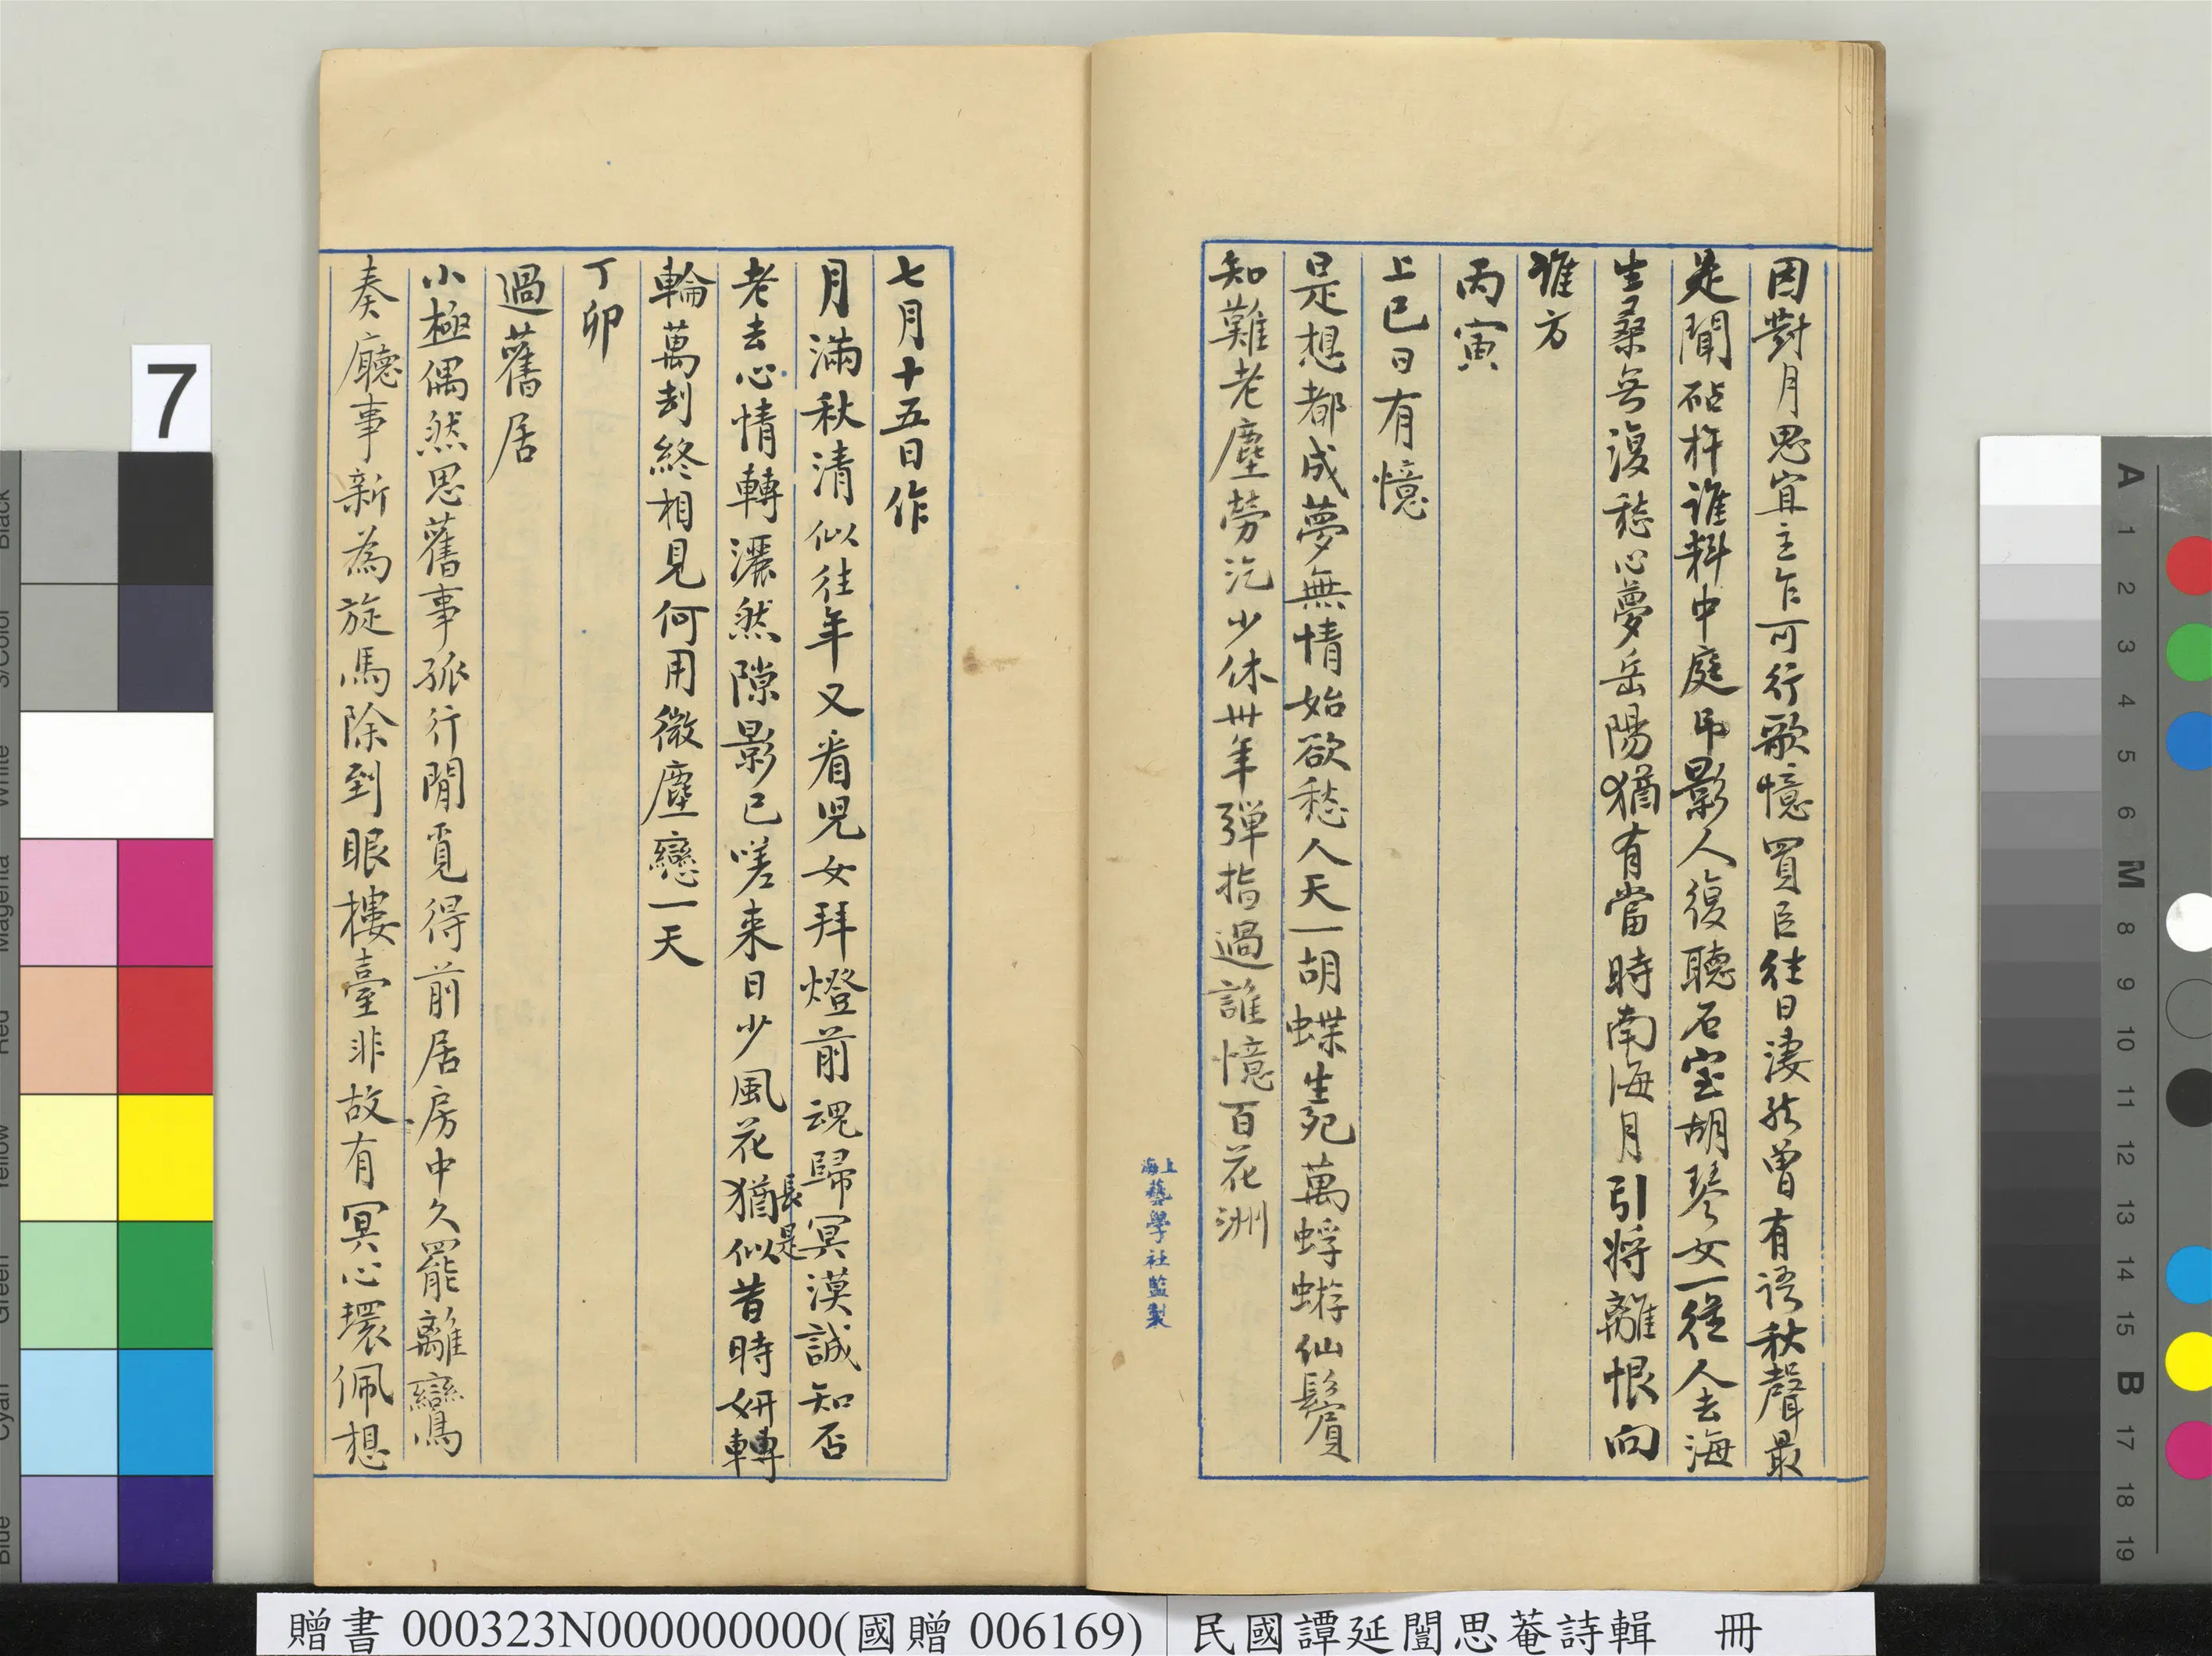 因對月思宜主乍可行歌憶買臣往日淒然曾有語秋聲最
是聞砧杵誰料中庭吊影人復聽石室胡琴女一從人去海
生桑無復愁心夢岳陽猶有當時南海月引將離恨向
誰方
丙寅
上巳日有憶
是想都成夢無情始欲愁人天一胡蝶生死萬蜉蝣仙鬢
知難老塵勞汔少休卅年彈指過誰憶百花洲
上海藝學社監製
七月十五日作
月滿秋清似往年又看兒女拜燈前魂歸冥漠誠知否
老去心情轉灑然隙影已嗟來日少風花猶似昔時妍轉
長是
輪萬刦終相見何用微塵戀一天
丁卯
過舊居
小極偶然思舊事孤行閒覓得前居房中久罷離鸞
奏廳事新為旋馬除到眼樓臺非故有冥心環佩想
7
贈書 000323N000000000(國贈 006169) 民國譚延闓思菴詩輯 冊
A 1 2 3 4 5 6 M 8 9 10 11 12 13 14 15 B 17 18 19
Black
3/Color
White
Magenta
Red
Yellow
Green
Cyan
Blue